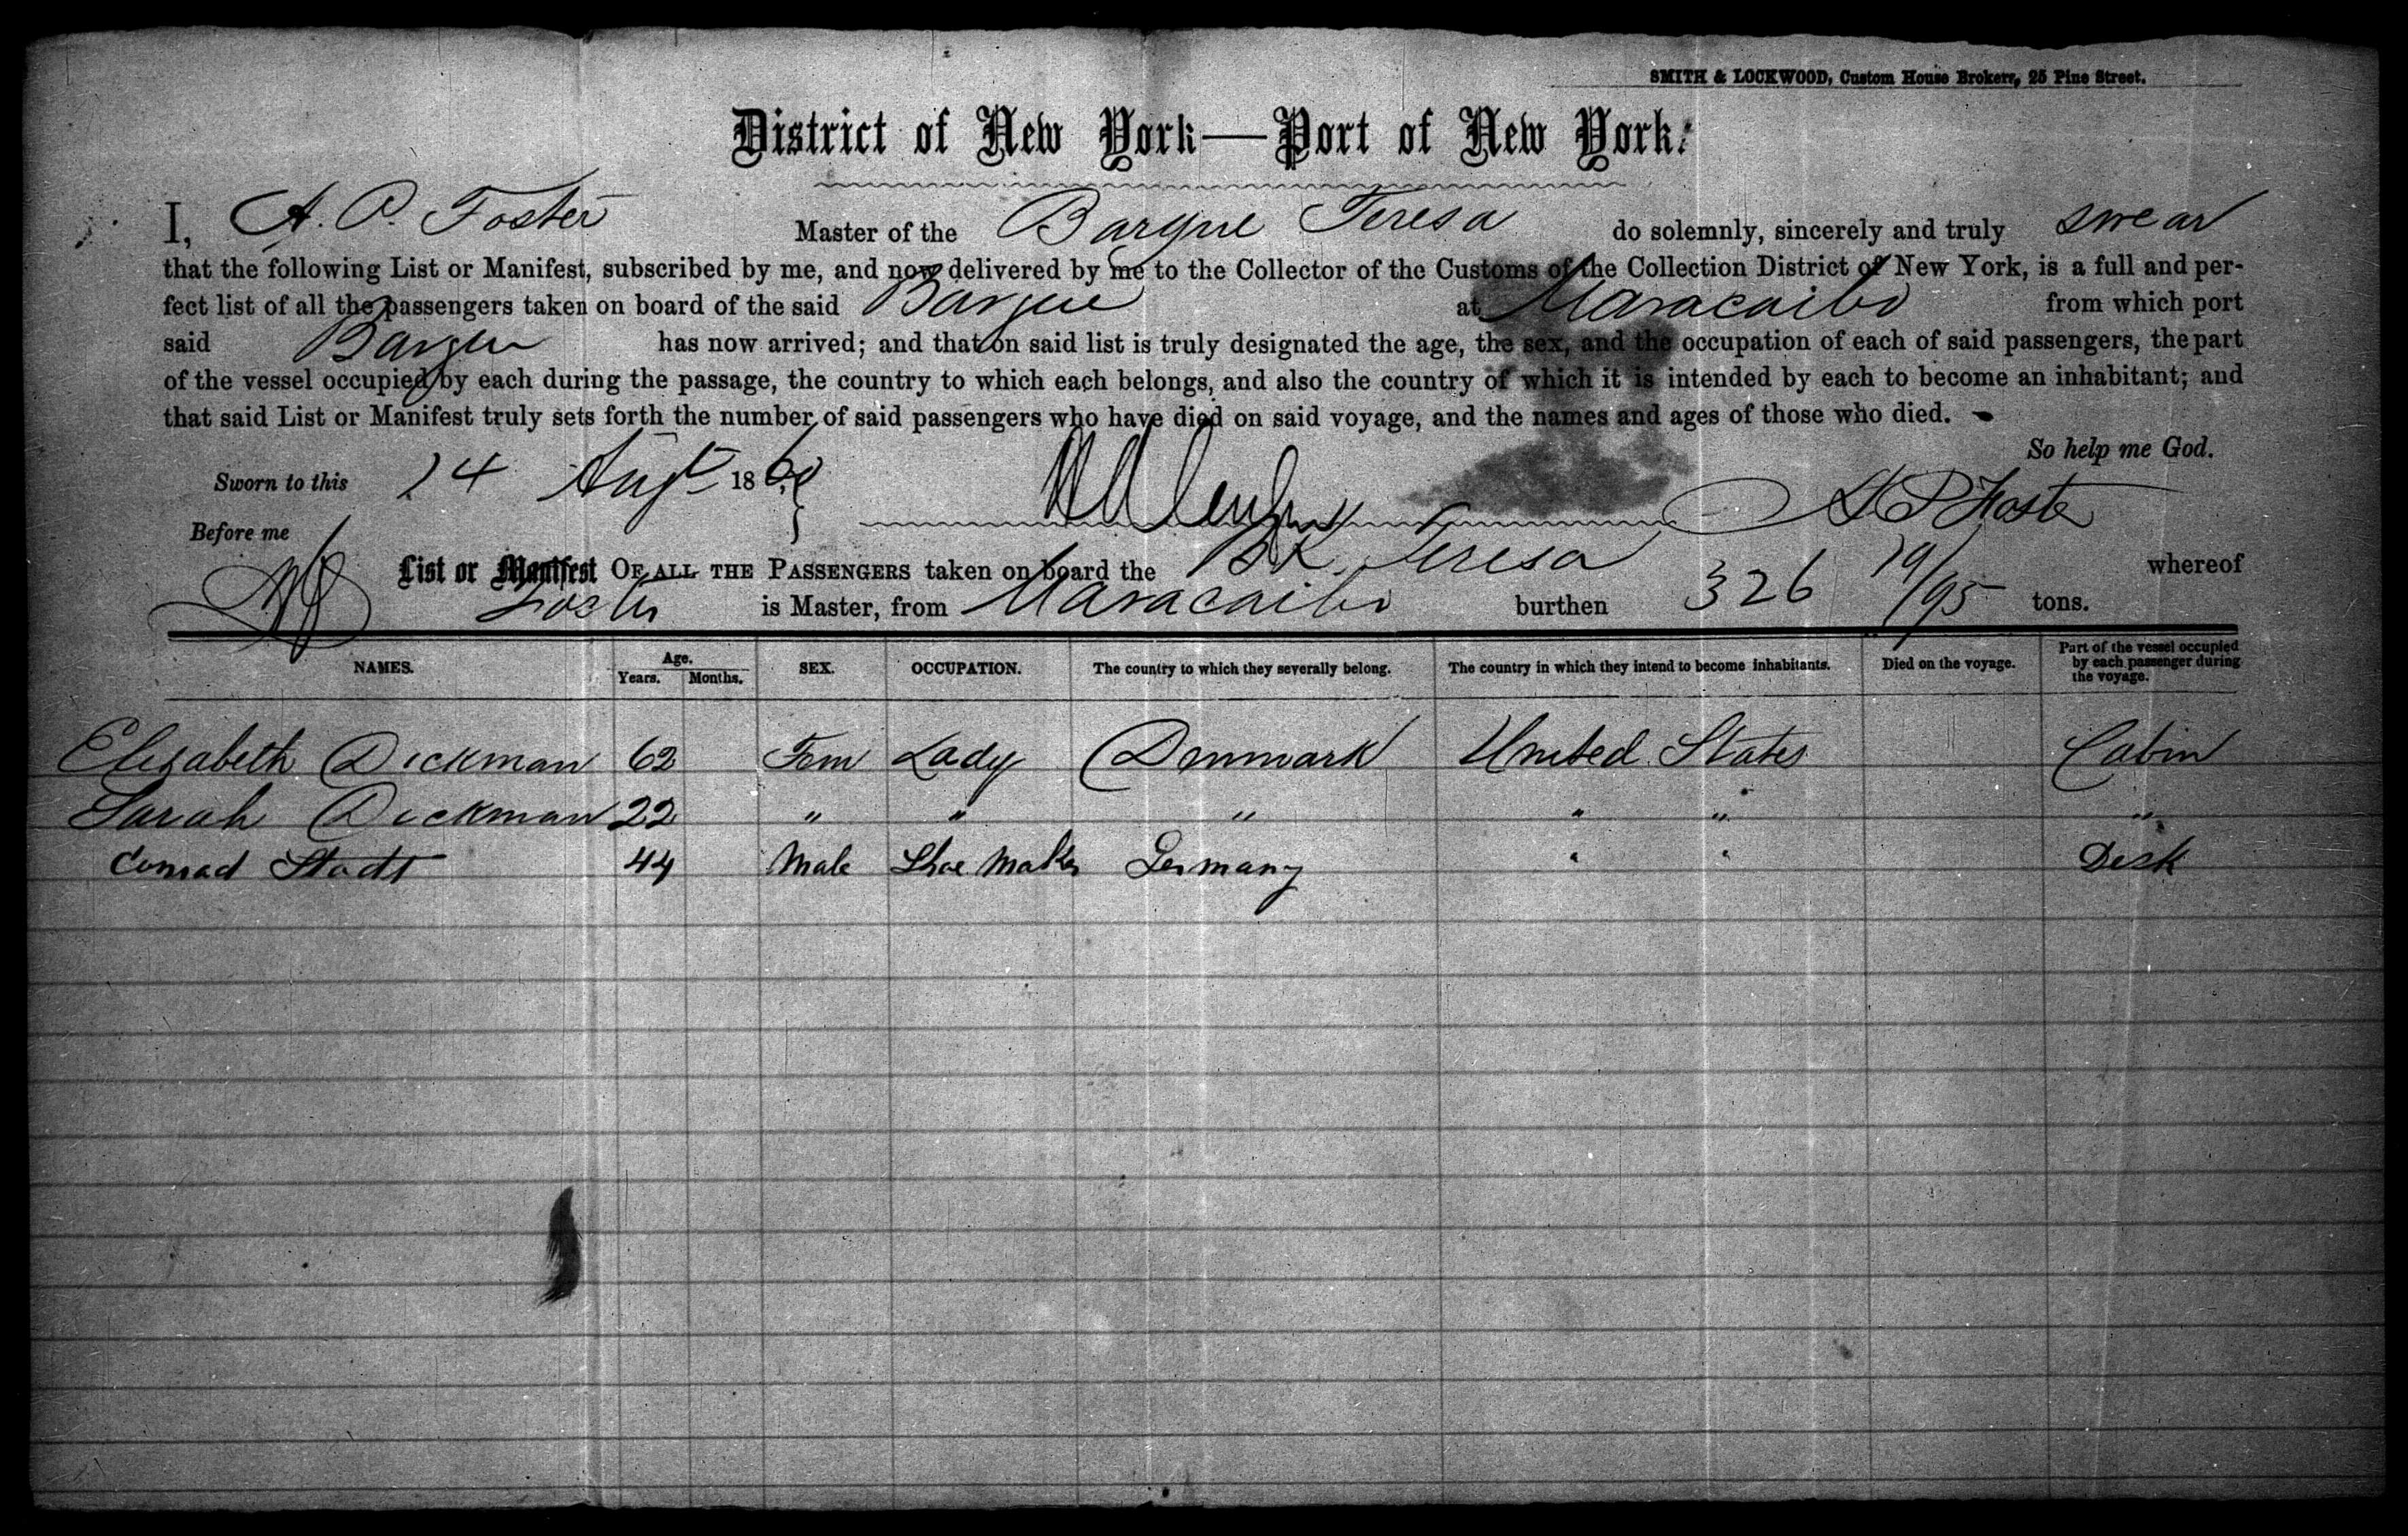 SMITH & LOCKWOOD, Custom House Brokers, 25 Pine Street.
District of New York—Port of New York.
I, A. P. Foster Master of the Barque Teresa do solemnly, sincerely and truly swear
that the following List or Manifest, subscribed by me, and now delivered by me to the Collector of the Customs of the Collection District of New York, is a full and per-
fect list of all the passengers taken on board of the said Barque at Maracaibo from which port
said Barque has now arrived; and that on said list is truly designated the age, the sex, and the occupation of each of said passengers, the part
of the vessel occupied by each during the passage, the country to which each belongs, and also the country of which it is intended by each to become an inhabitant; and
that said List or Manifest truly sets forth the number of said passengers who have died on said voyage, and the names and ages of those who died.
So help me God.
Sworn to this 14 Augt 1860
A P Foster
Before me
List or Manifest OF ALL THE PASSENGERS taken on board the Bk Teresa whereof
Foster is Master, from Maracaibo burthen 326 19/95 tons.
NAMES. Age. Years. Months. SEX. OCCUPATION. The country to which they severally belong. The country in which they intend to become inhabitants. Died on the voyage. Part of the vessel occupied by each passenger during the voyage.
Elisabeth Dickman 62 Fem Lady Denmark United States Cabin
Sarah Dickman 22 " " " " " "
Conrad Stadt 44 Male Shoe Maker Germany " " Deck